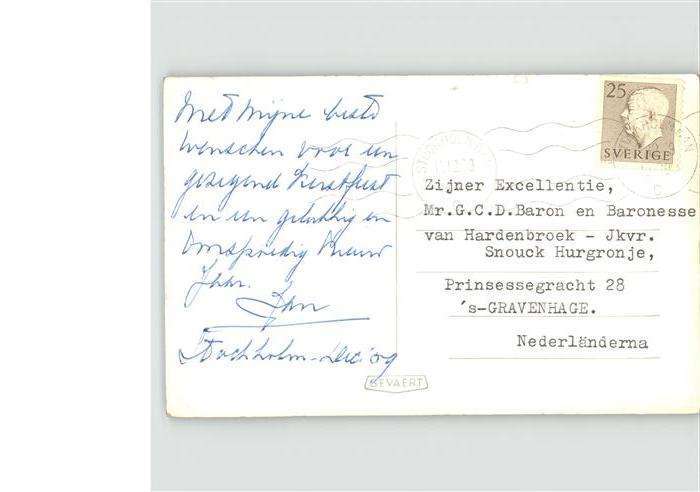 Met Mijne beste
wenschen voor een
gezegend Kerstfeest
en een gelukkig en
voorspoedig Nieuw
Jaar.
Jan
Stockholm - Dec
25
SVERIGE
Zijner Excellentie,
Mr.G.C.D.Baron en Baronesse
van Hardenbroek - Jkvr.
Snouck Hurgronje,
Prinsessegracht 28
's-GRAVENHAGE.
Nederländerna
GEVAERT